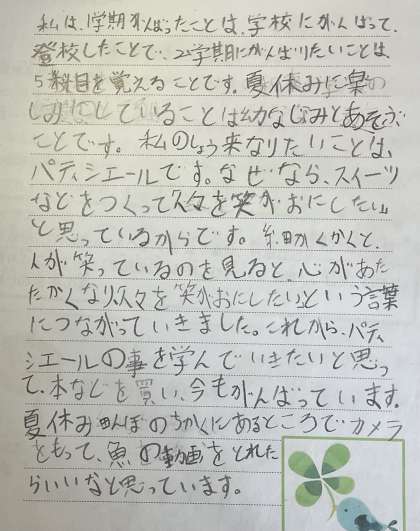 私は、1学期がんばったことは、学校にがんばって、
登校したことで、2学期にがんばりたいことは、
5教科目を覚えることです。夏休みに楽の
しみにしていることは幼なじみとあそぶ
ことです。私のしょう来なりたいことは、
パティシエールです。なぜなら、スイーツ
などをつくって人々を笑がおにしたい
と思っているからです。細かくかくと、
人が笑っているのを見ると、心があた
たかくなり人々を笑がおにしたいという言葉
につながっていきました。これから、パティ
シエールの事を学んでいきたいと思っ
て、本などを買い、今もがんばっています。
夏休み田んぼのちかくにあるところでカメラ
をもって、魚の動画をとれた
らいいなと思っています。